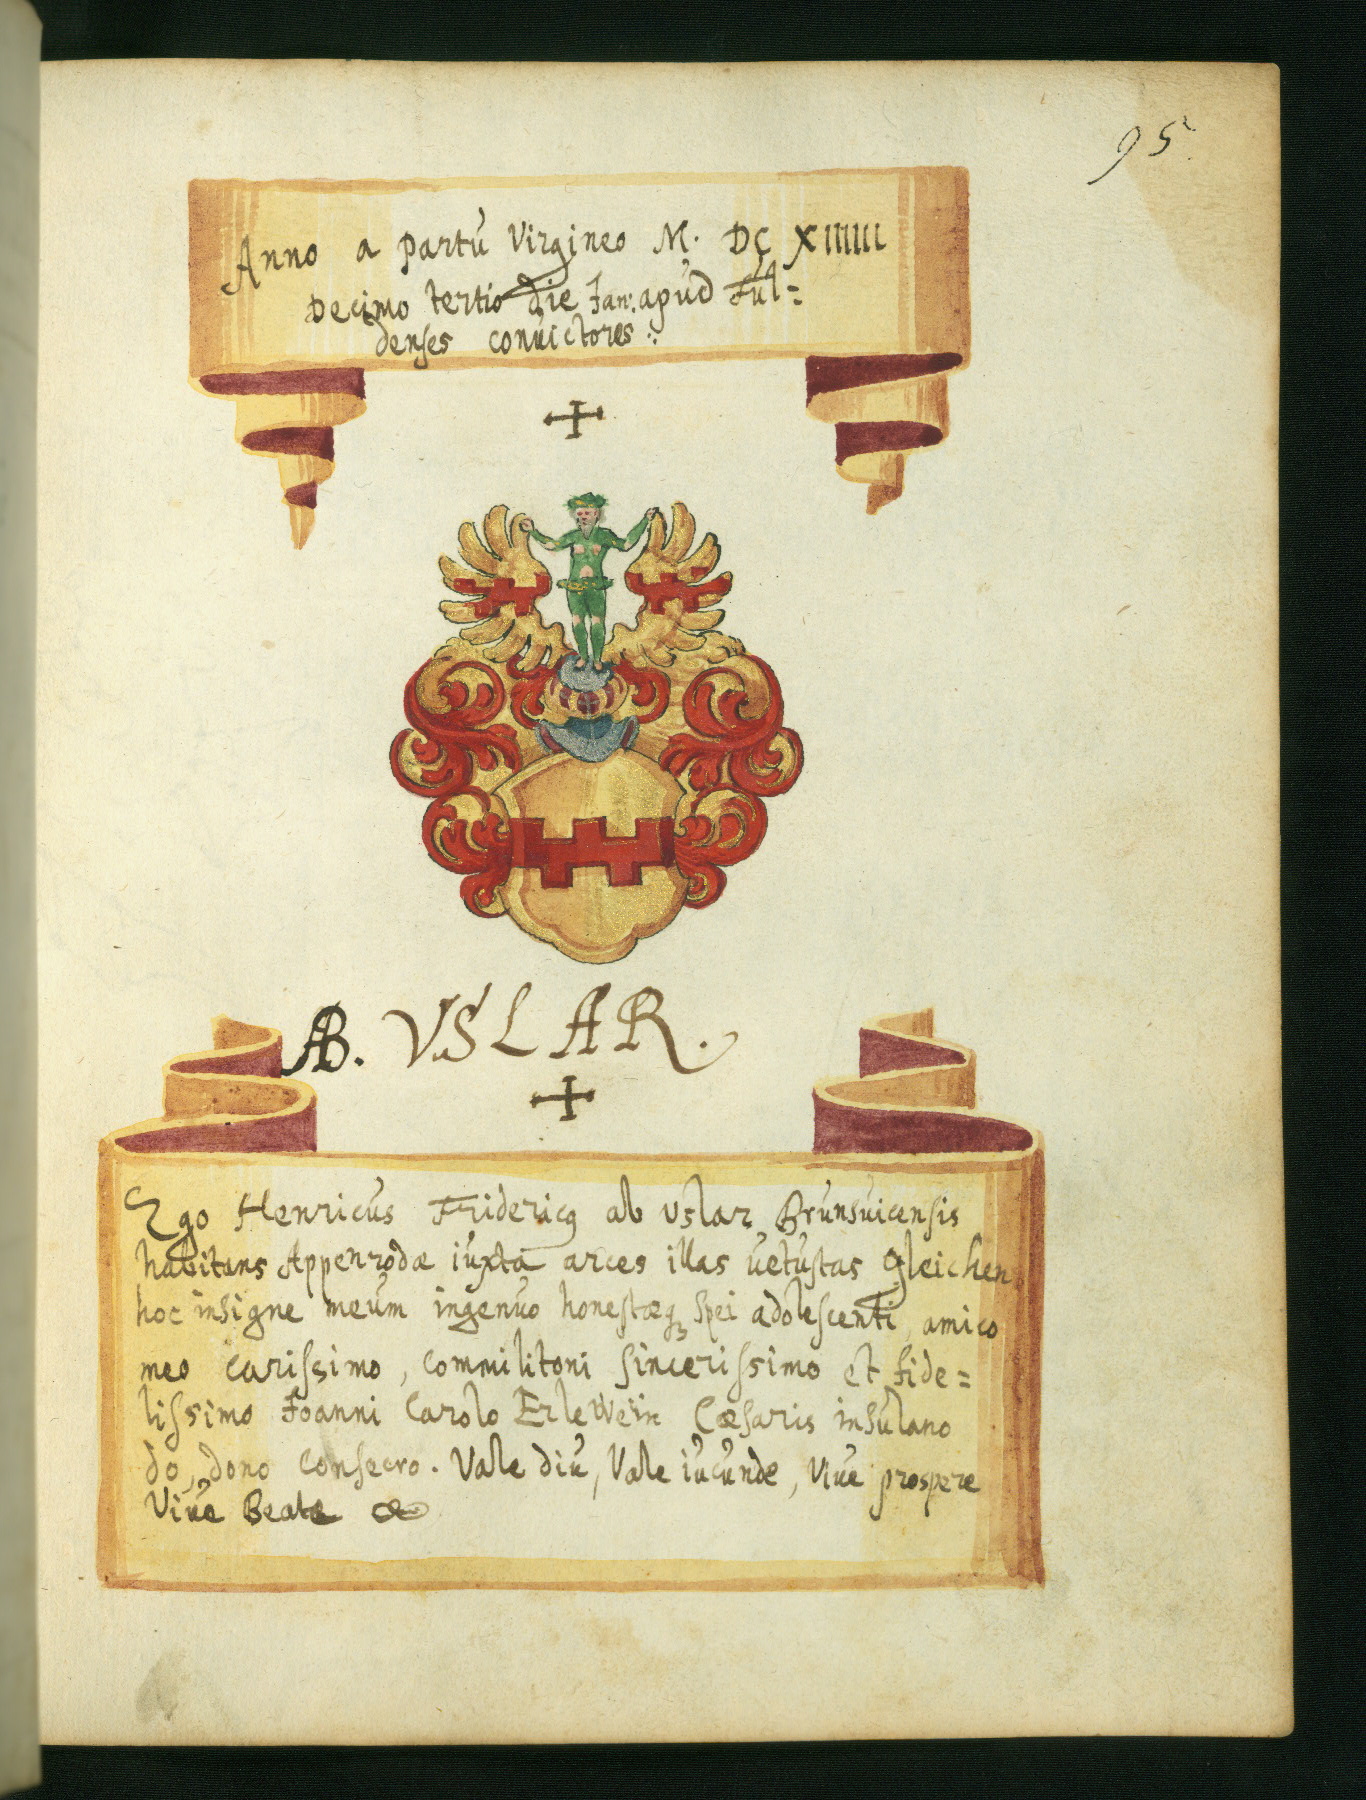 95.
Anno a partu Virgineo M. DC XIIIIII
Decimo tertio die Jan: apud Ful=
denses convictores :.
AB. VSLAR.
Ego Henricus Fridericq ab Vslar Brunsuicensis
habitans Appenrodæ iuxta arces illas uetustas Gleichen
hoc insigne meum ingenuo honestæq3 spei adolescenti, amico
meo carissimo, commilitoni sincerissimo et fide=
lissimo Joanni Carolo Erlewein Cæsaris insulano
do, dono consecro. Vale diu, Vale iucunde, Viue prospere
Viue Beate